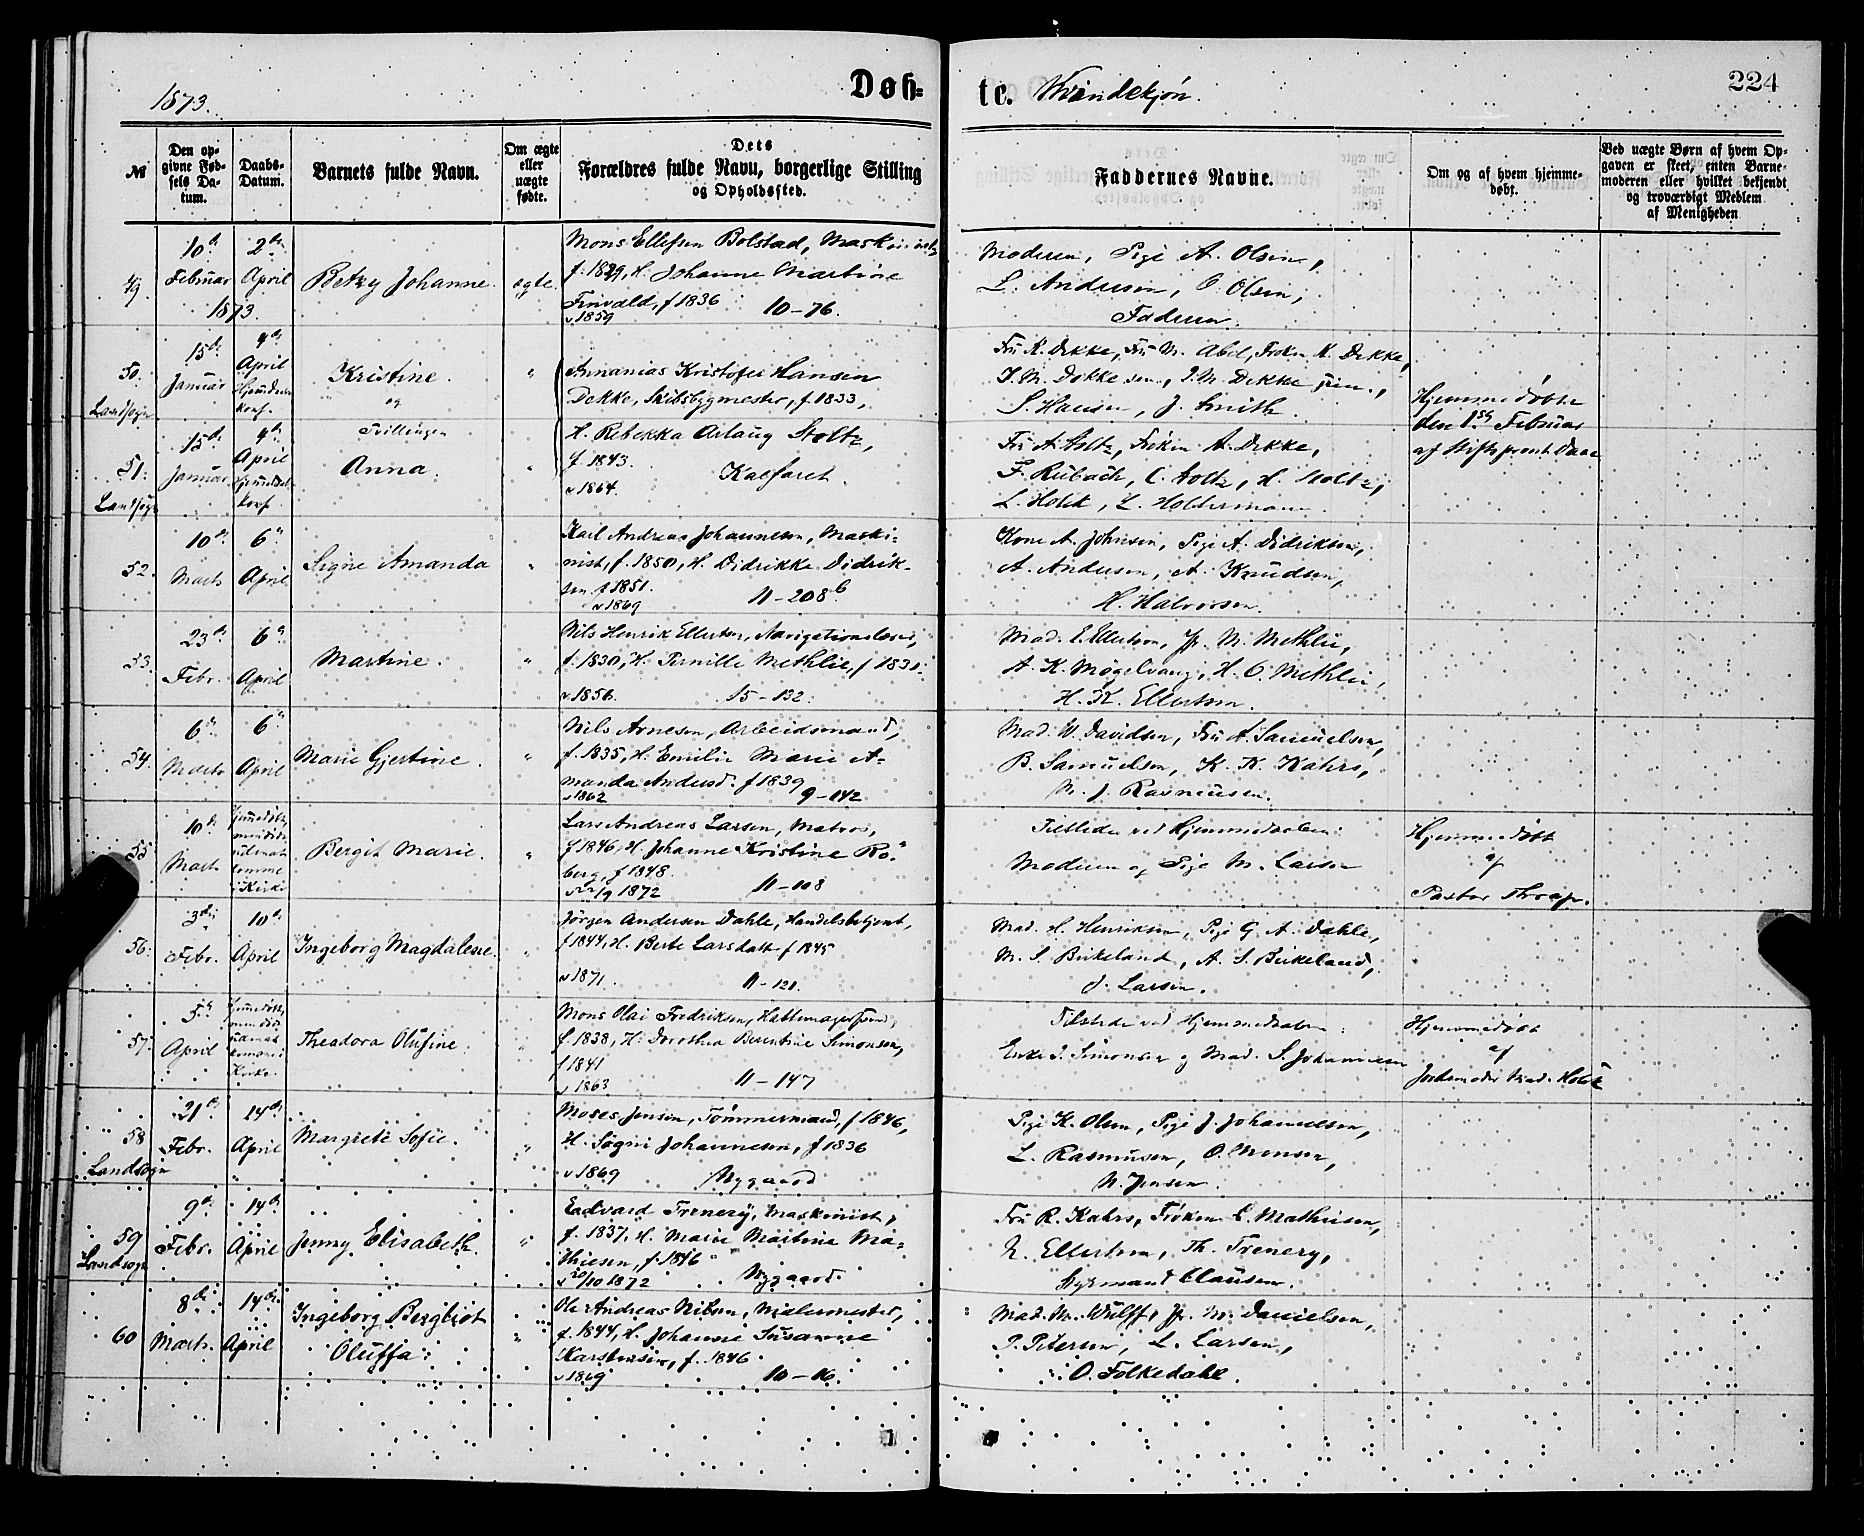 1873.
Døb-
te. Kvindekjøn.
224
№
Den op-
givne Fød-
sels Da-
tum.
Daabs-
Datum.
Barnets fulde Navn.
Om ægte
eller
uægte
fødte.
Dets
Forældres fulde Navn, borgerlige Stilling
og Opholdssted.
Faddernes Navne.
Om og af hvem hjemme-
døbt.
Ved uægte Børn af hvem Op-
gaven er skeet, enten Barne-
moderen eller hvilket bekjendt
og troværdigt Medlem
af Menigheden
49.
10de Februar 1873.
2den April
Betzy Johanne
ægte
Mons Ellefsen Bolstad, Maskinist,
f. 1829, H. Johanne Martine
f 1836
v 1859
10-76.
Moderen, Pige A. Olsen,
L. Andersen, O. Olsen,
Faderen.
50.
Landsogn
15de Januar
4de April
Kristine.
og
Tvillinger
"
Annanias Kristofer Hansen
Dekke, Skibsbygmester, f. 1833,
Fru K. Dekke, Fru M. Abel, Frøken K. Dekke,
J. M. Dekke sen., J. M. Dekke jun.,
S. Hansen, J. Smith.
Hjemmedøbte
den 1ste Februar
af Stiftsprovst Daae
51.
Landsogn
15de Januar
4de April
Anna.
"
H. Rebekka Aslaug Stoltz,
f. 1843.
v 1864.
Kalfaret.
Fru A. Stoltz, Frøken A. Dekke,
F. Rubach, C. Stoltz, H. Stoltz,
L. Holck, L. Holtermann.
52.
10de Marts
6te April
Signe Amanda
"
Karl Andreas Johannesen, Maski-
nist, f. 1850, H. Didrikke Didrik-
sen f 1851.
v 1869
11-208 b
Kone A. Johnsen, Pige A. Didriksen,
A. Andersen, A. Knudsen,
H. Halvorsen.
53.
23de Febr.
6te April
Martine.
"
Nils Henrik Ellertsen, Navigationslærer,
f. 1830, H. Pernille Methlie, f 1831.
v 1856.
15-132.
Mad. E. Ellertsen, Jfr. M. Methlie,
A. K. Møgelvang, H. O. Methlie,
H. K. Ellertsen.
54.
6te Marts
6te April
Marie Gjertine.
"
Nils Arnesen, Arbeidsmand,
f. 1835, H. Emilie Marie A-
manda Andersd. f 1839
v 1862
9-142
Mad. W. Davidsen, Fru A. Samuelsen,
B. Samuelsen, K. K. Kahrs,
N. J. Rasmussen.
55.
10de Marts
Bergit Marie.
"
Lars Andreas Larsen, Matros,
f 1846, H. Johanne Kristine Ro-
berg, f 1848.
1872
11-108
Tilstede ved Hjemmedaaben:
Moderen og Pige M. Larsen
Hjemmedøbt
af
Pastor Thrap.
56.
3die Febr.
10de April
Ingeborg Magdalene.
"
Jørgen Andersen Dahle, Handelsbetjent,
f 1844, H. Berte Larsdatt. f 1845
v 1871.
11-121.
Mad. H. Henriksen, Pige G. A. Dahle,
M. S. Birkeland, A. S. Birkeland,
J. Larsen.
57.
5te April
Theadora Olufine
"
Mons Olai Fredriksen, Hattemagersvend,
f. 1838, H. Dorothea Berentine Simonsen,
f 1841
v 1863
11-147
Tilstede ved Hjemmedaaben:
Enke S. Simonsen og Mad. S. Johannesen
Hjemmedøbt
af
Jordemoder Mad. Holck
58
Landsogn
21de Febr.
14de April
Margrete Sofie.
"
Moses Jensen, Tømmermand, f 1846,
H. Signi Johannesen, f 1836
v 1869
Nygaard
Pige K. Olsen, Pige J. Johannesen,
L. Rasmussen, O. Monsen,
N. Jensen.
59
Landsogn
9de Febr.
14de April
Jenny Elisabeth.
"
Edvard Trenery, Maskinist,
f. 1837, H. Marie Martine Ma-
thiesen, f. 1846
v 20/10 1872
Nygaard.
Fru R. Kahrs, Frøken C. Mathiesen,
N. Ellertsen, Th. Trenery,
Styrmand Clausen.
60
8de Marts.
14de April
Ingeborg Bergliot
Oluffa.
"
Ole Andreas Nilsen, Malermester,
f. 1844, H. Johanne Susanne
Karstensen, f. 1846
v 1869
10-16.
Mad. M. Wulff, Jfr. M. Danielsen,
P. Petersen, L. Larsen,
O. Folkedahl.